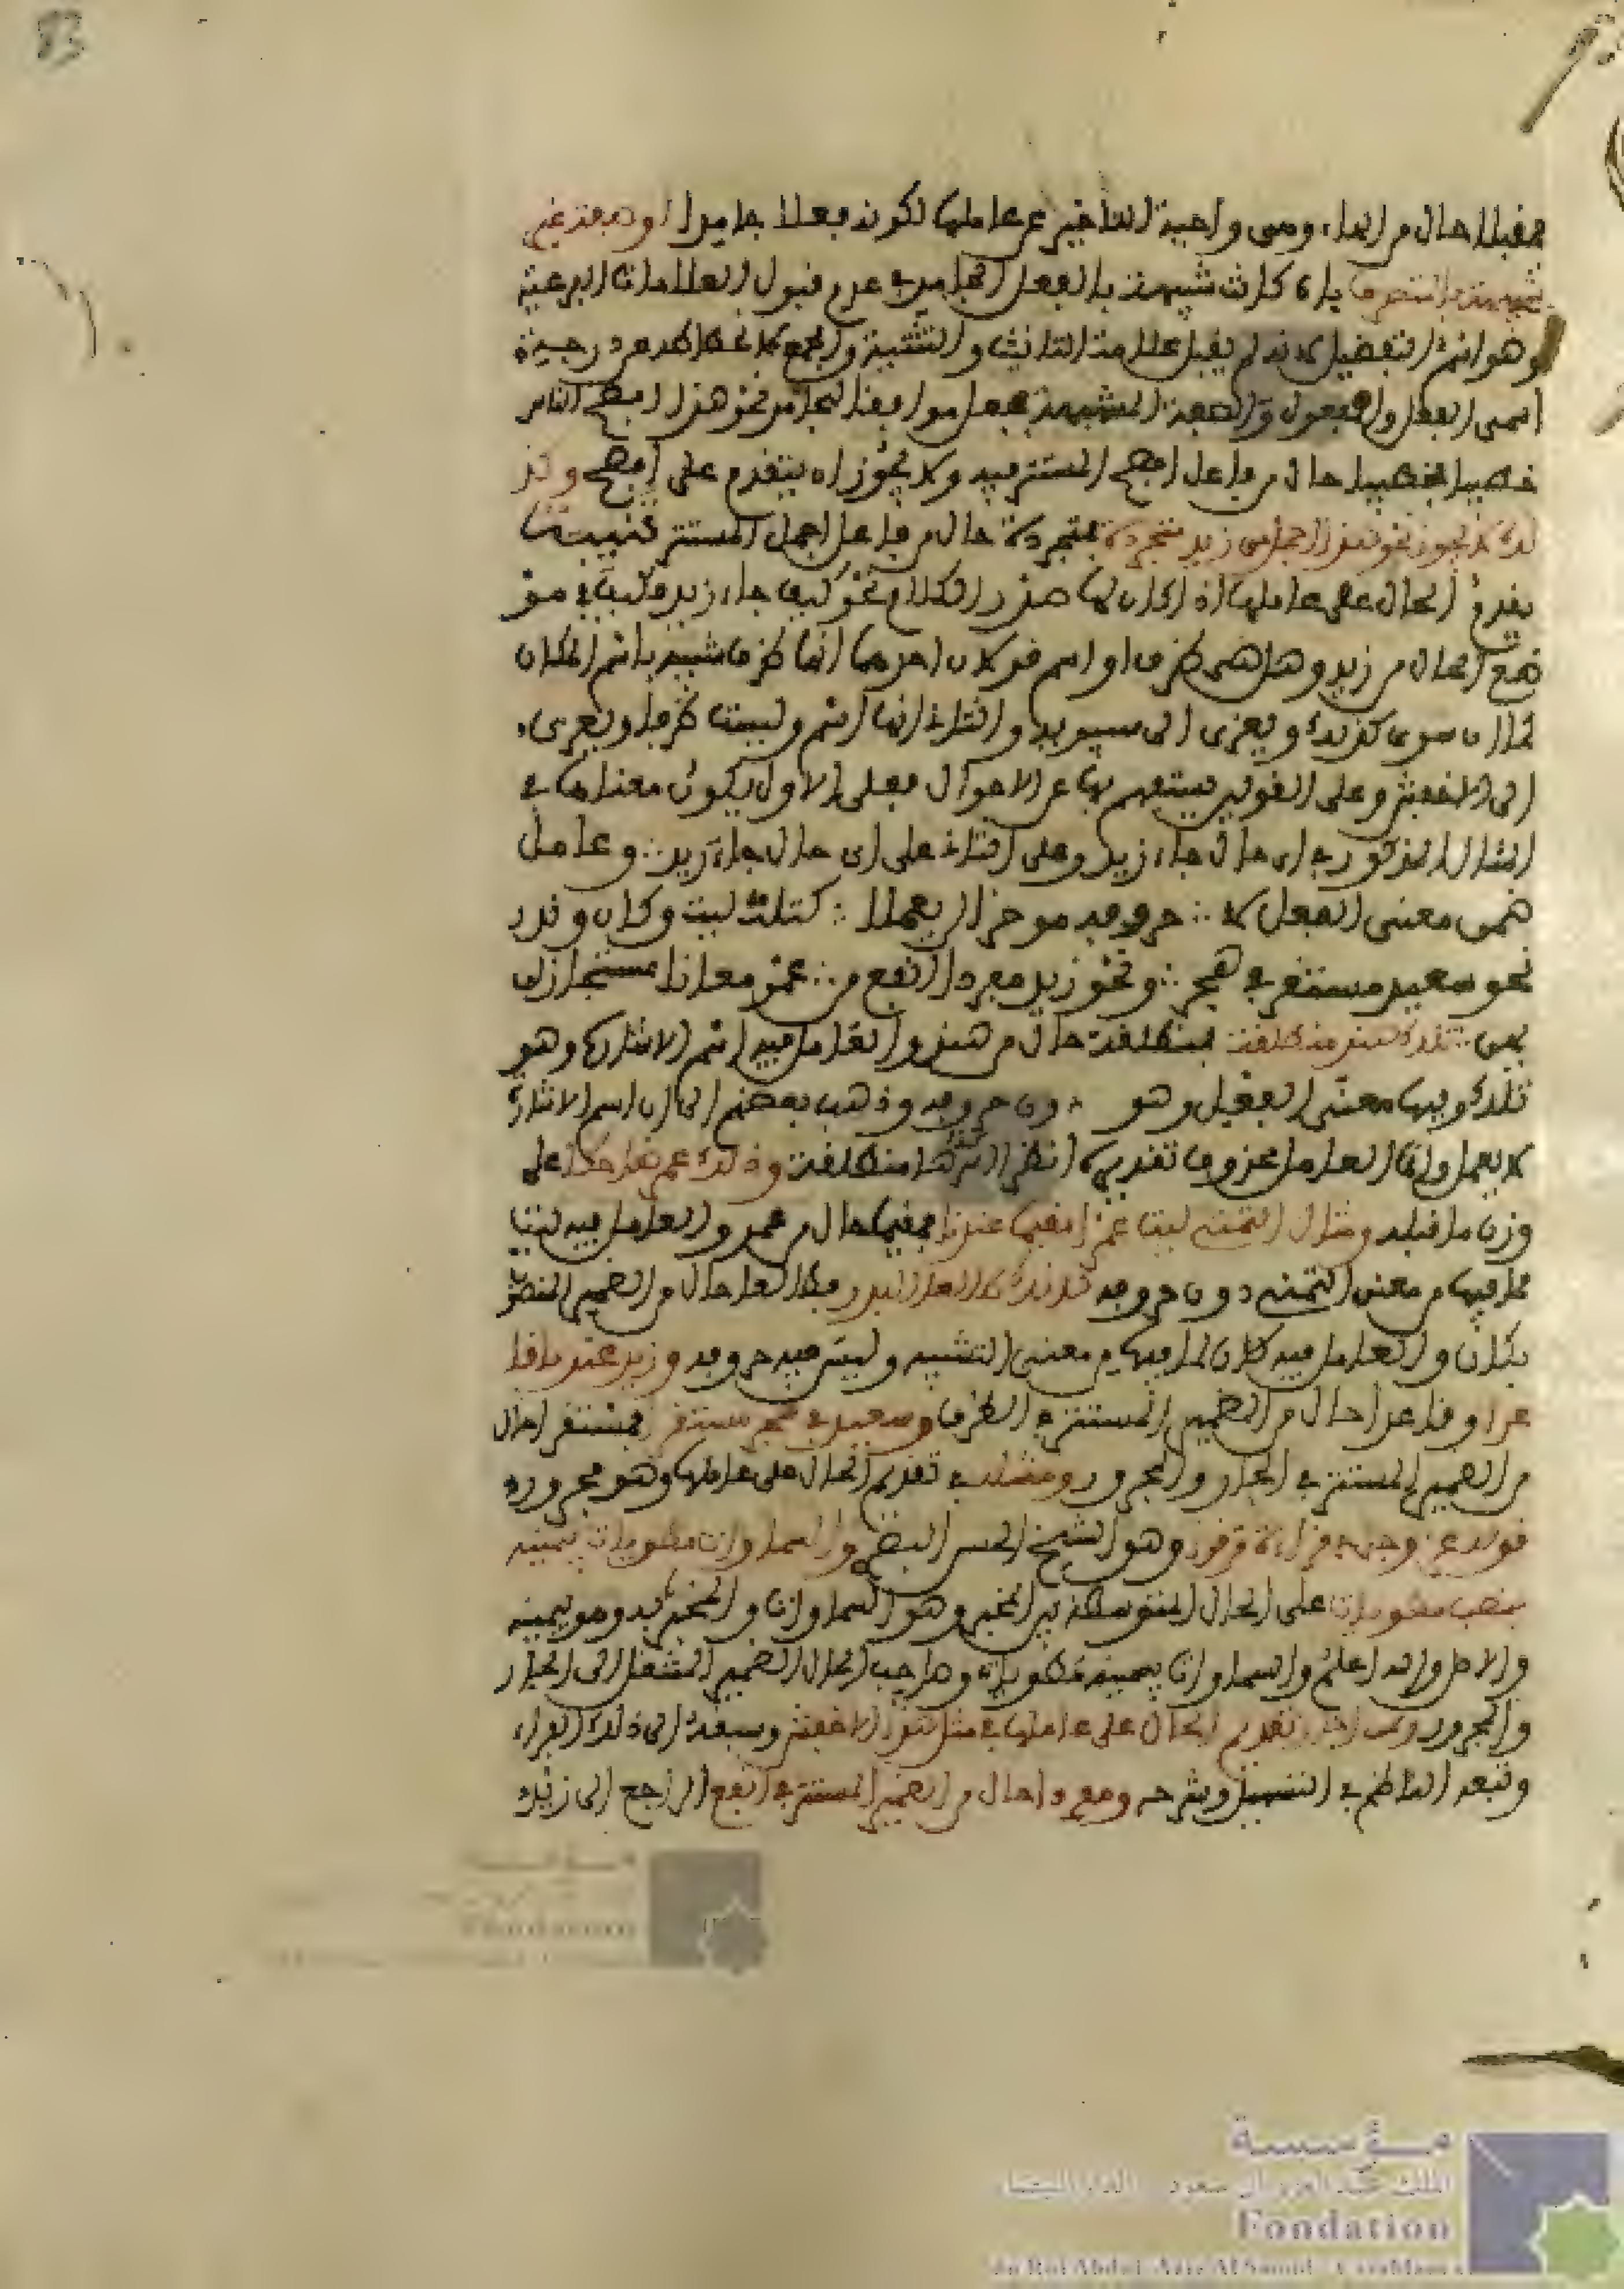 83
مقبلا حال من الهاء وهي واجبة التاخير عن عاملها لكونه فعلا جامدا او صفة غير
شبيهة بالمتصرف بان كانت شبيهة بالفعل الجامد في عدم قبول العلامات الفرعية
وهو اسم التفضيل لانه لم يقبل علامة التانيث والتثنية والجمع كانحطاطه عن درجة
اسمي الفعل والمفعول والصفة المشبهة فجعل موافقا للجامد نحو هذا افصح الناس
خطيبا فخطيبا حال من فاعل افصح المستتر فيه ولا يجوز ان يتقدم على افصح وكذ
لك لا يجوز نحو هند اجمل من زيد متجردة فمتجردة حال من فاعل اجمل المستتر تنبيه
يقدم الحال على عاملها اذا كان لها صدر الكلام نحو كيف جاء زيد فكيف في مو
ضع الحال من زيد وهل هي ظرف او اسم قولان احدهما انها ظرف شبيه باسم المكان
ويعزى الى سيبويه والثاني انها اسم وليست ظرفا ويعزى
الى الاخفش وعلى القولين يستفهم بها عن الاحوال فعلى الاول يكون معناها في
المثال المذكور في اي حال جاء زيد وعلى الثاني على اي حال جاء زيد وعامل
ضمن معنى الفعل لا حروفه موخرا لن يعملا كتلك ليت وكان وندر
نحو سعيد مستقرا في هجر ونحو زيد مفردا انفع من عمرو معانا مستجاز لن
يهن تلك هند منطلقة فمنطلقة حال من هند والعامل فيه اسم الاشارة وهو
تلك وفيها معنى الفعل وهو دون حروفه وذهب بعضهم الى ان اسم الاشارة
لا يعمل وانما العامل محذوف تقديره انظر اليها منطلقة وذلك عمرو ضاحكا على
وزن ما قبله ومثال التمني ليت عمرا مقيما عندنا فمقيما حال من عمرو والعامل فيه ليت
لما فيها من معنى التمني دون حروفه كانك طالعا البدر فطالعا حال من الضمير المنصو
بكان والعامل فيه كان لما فيها من معنى التشبيه وليس فيه حروفه وزيد عندنا قا
عدا وقاعدا حال من الضمير المستتر في الظرف وسعيد في هجر مستقرا فمستقرا حال
من الضمير المستتر في الجار والمجرور ومثله في تقديم الحال على عاملها وهو مجرور
قوله عز وجل في قراءة من قرا وهو الشيخ الحسن البصري والسماوات مطويات بيمينه
بنصب مطويات على الحال المتوسطة بين المخبر وهو السماوات والمخبر به وهو بيمينه
والاصل والله اعلم والسماوات بيمينه مطويات وصاحب الحال الضمير المنتقل الى الجار
والمجرور وممن اجاز تقديم الحال على عاملها في مثل هذا الاخفش وسبقه الى ذلك الفراء
وتبعه الناظم في التسهيل وشرحه ومفردا حال من الضمير المستتر في انفع الراجع الى زيد
مؤسسة
الملك عبد العزيز آل سعود الدار البيضاء
Fondation
du Roi Abdul-Aziz Al Saoud Casablanca